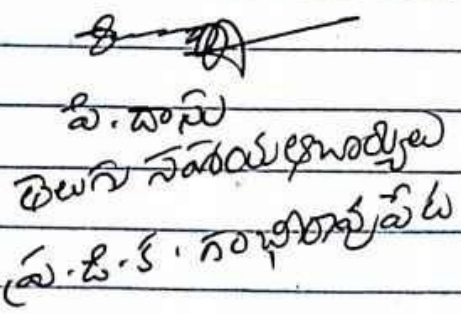 పి. దాసు
తెలుగు సహాయఆచార్యులు
ప్ర. డి. క. గంభీరావుపేట